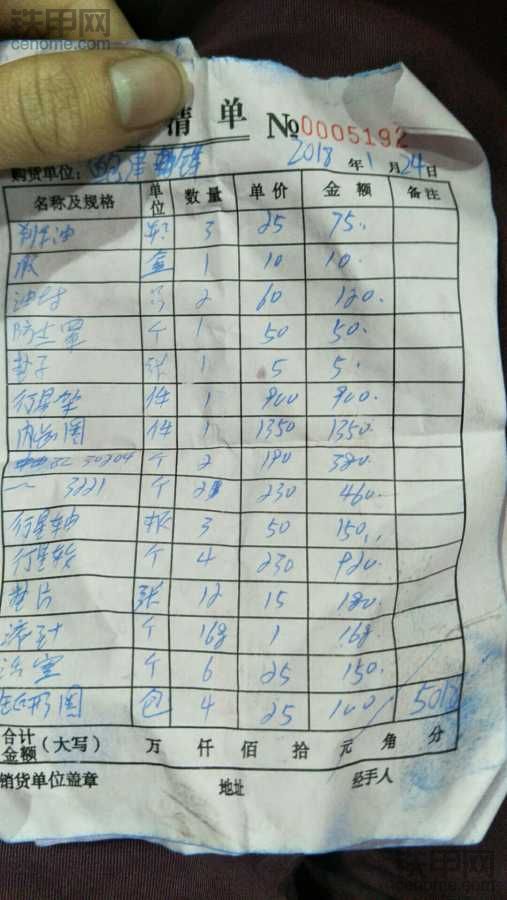 铁甲网
cehome.com
清单 №0005192
购货单位: 2018年1月24日
名称及规格 单位 数量 单价 金额 备注
刹车油 3 25 75
胶 盒 1 10 10
油封 2 60 120
防尘罩 个 1 50 50
垫子 张 1 5 5
行星架 件 1 900 900
内齿圈 件 1 1350 1350
30204 个 2 190 380
3221 个 2 230 460
行星轴 根 3 50 150
行星轮 个 4 230 920
垫片 张 12 15 180
滚针 个 168 1 168
个 6 25 150
圈 包 4 25 100 501
合计金额(大写) 万 仟 佰 拾 元 角 分
销货单位盖章 地址 经手人
铁甲网
cehome.com